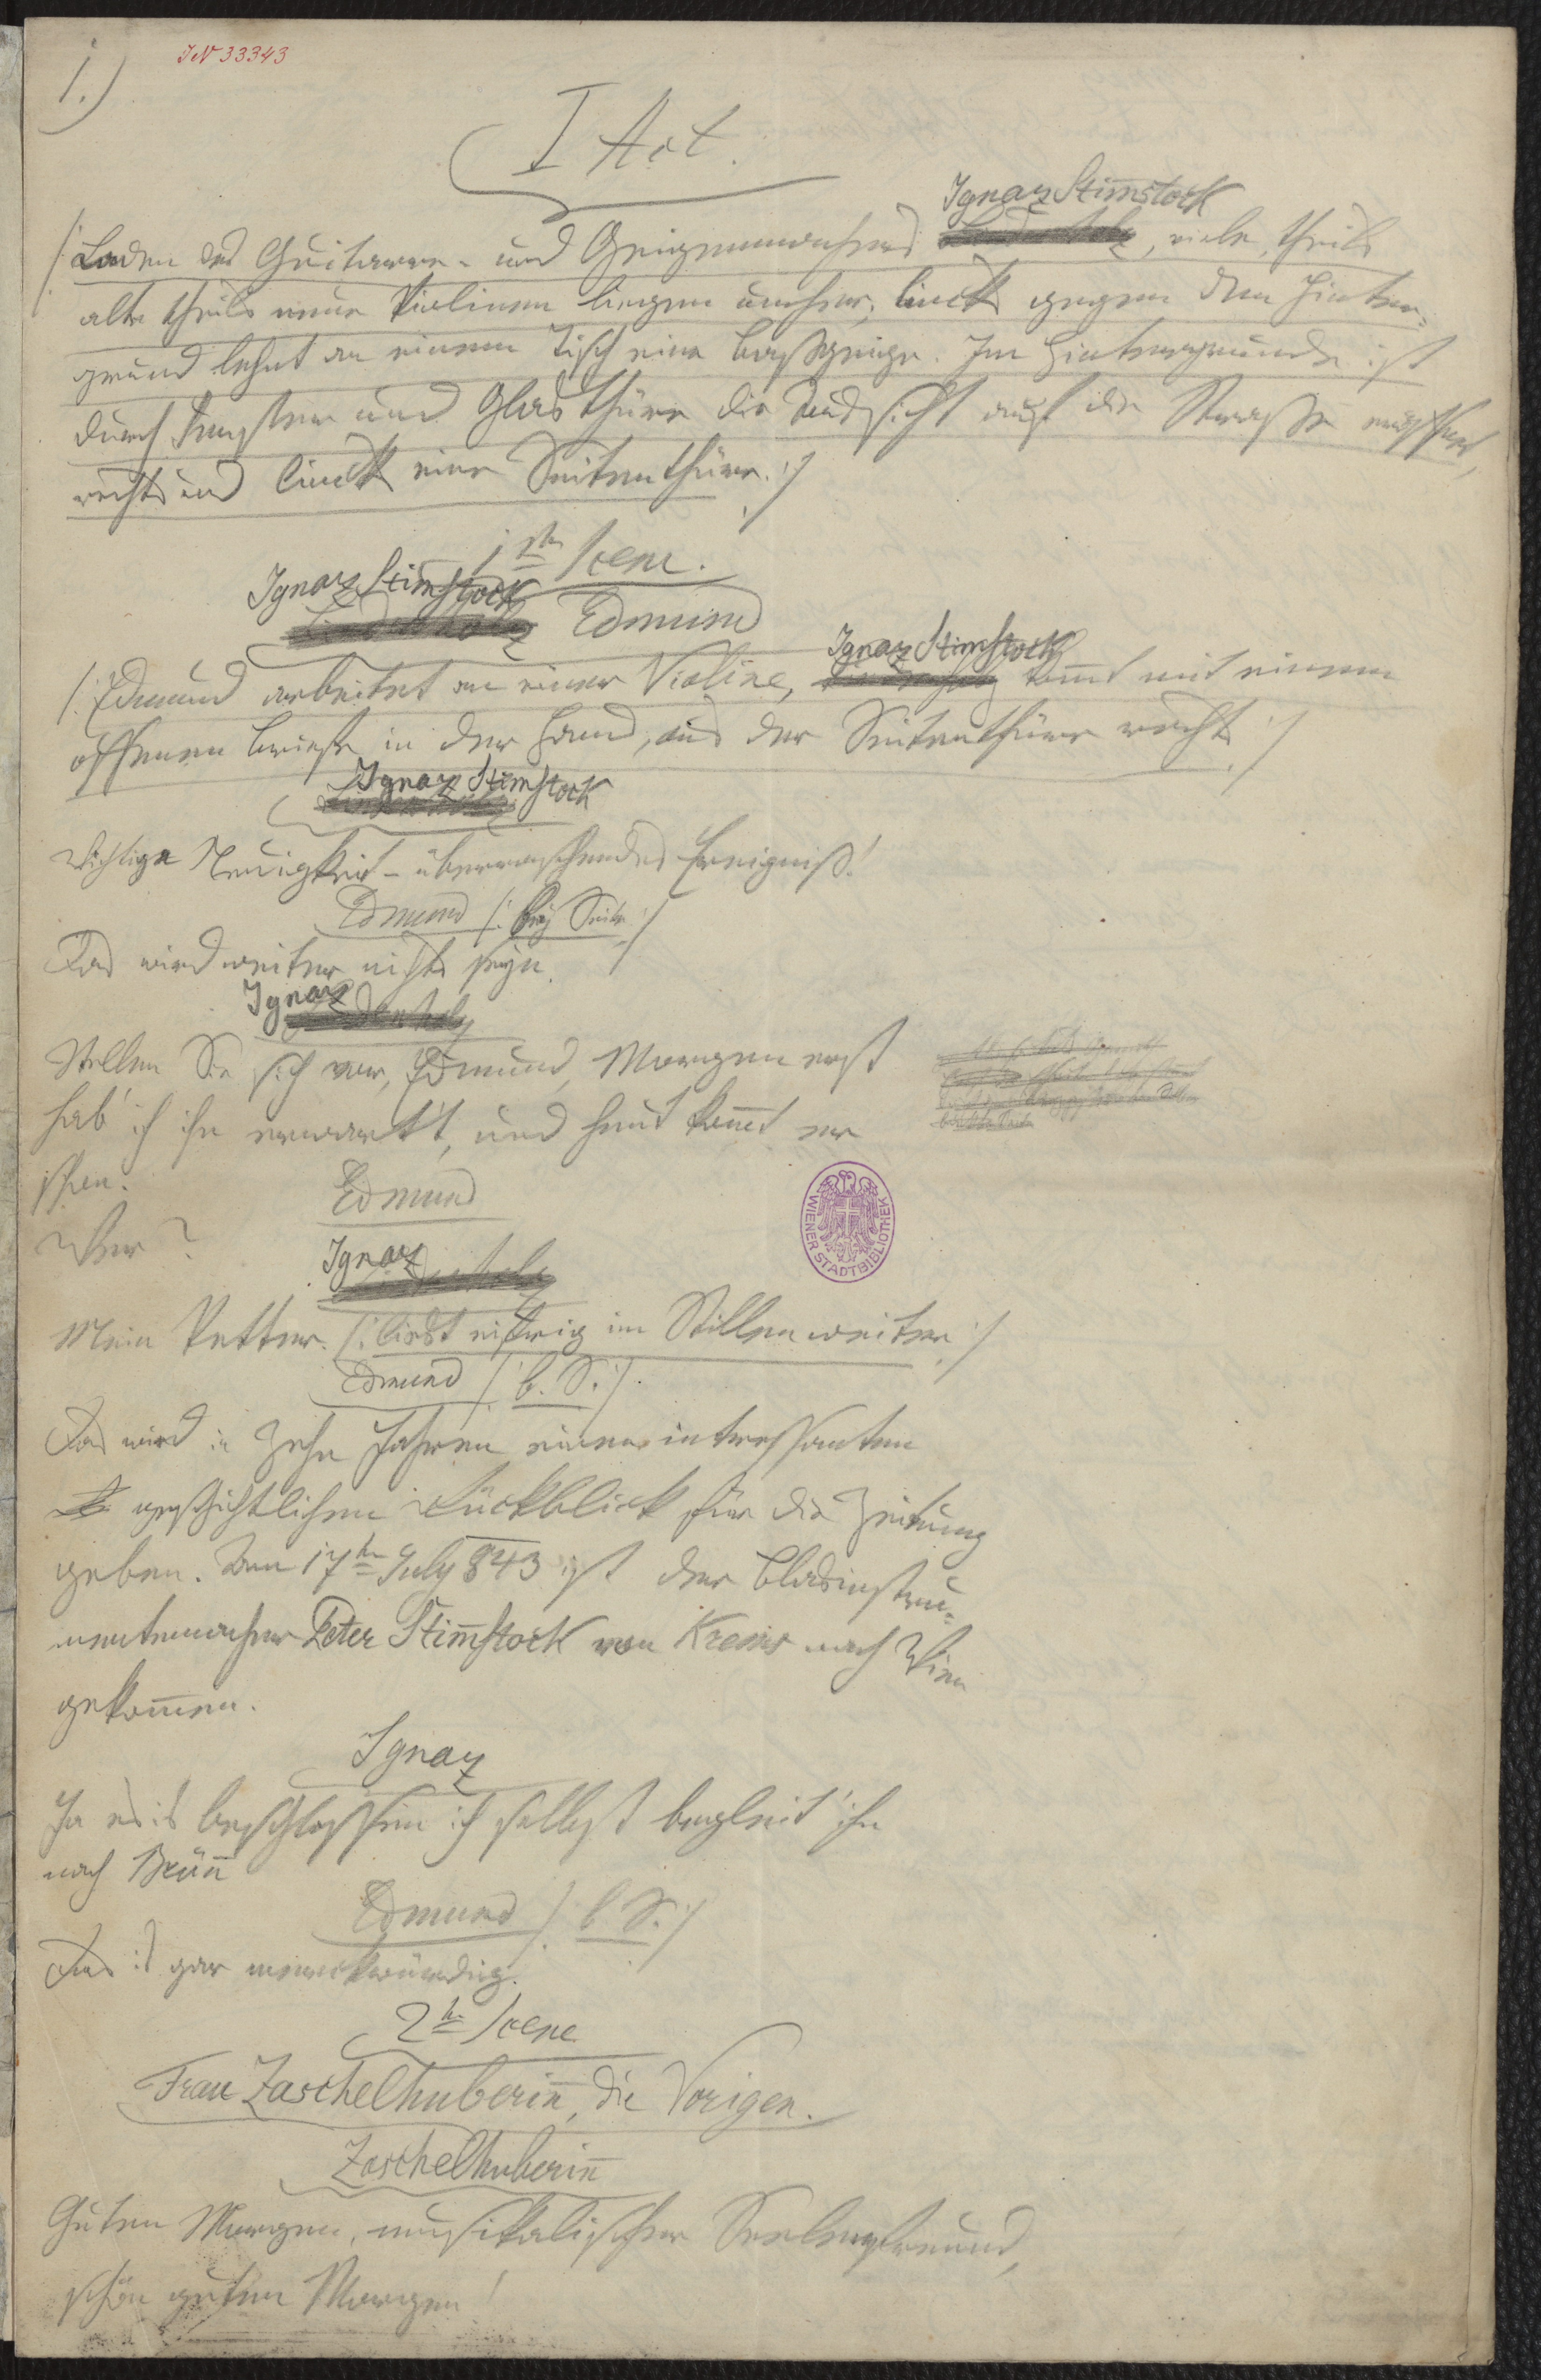 1.)
JN 33343
I Act.
Ignaz Stim̅stock
/: Laden des Guitarre- und Geigenmachers, viele, theils
alte theils neue Violinen liegen umher, linck gegen den Hinter-
grund lehnt an einem Tisch eine Bassgeige. Im Hintergrunde ist
durch Fenster und Glasthüre die Aussicht auf die Strasse
rechts und linck eine Seitenthüre. :/
1ste Scene.
Ignaz Stim̅stock
Edmund
Ignaz Stim̅stock
/: Edmund arbeitet an einer Violine, kom̅t mit einem
offenen Briefe in der Hand, aus der Seitenthüre rechts :/
Ignaz Stim̅stock
Wichtige Neuigkeit – überraschendes Ereigniß!
Edmund /: bey Seite :/
Das wird weiter nichts seyn.
Ignaz
Stellen Sie sich vor, Edmund, Morgen erst
hab' ich ihn erwart't, und heut kom̅t er
schon.
Edmund
Wer?
Ignaz
Mein Vetter. /: liest eifrig im Stillen weiter :/
Edmund /: b. S. :/
Das wird in zehn Jahren einen interessanten
geschichtlichen Rückblick für die Zeitung
geben. Den 17ten July 843 ist der Blasinstru-
mentenmacher Peter Stim̅stock von Krems nach Wien
gekom̅en.
Ignaz
Ja es is beschlossen ich selbst begleit' ihn
nach Brün̅
Edmund /: b. S. :/
Das is gar merckwürdig.
2te Scene
Frau Zaschelhuberin̅, die Vorigen.
Zaschelhuberin̅
Guten Morgen, musikalischer Seelenfreund,
schön guten Morgen!
WIENER STADTBIBLIOTHEK